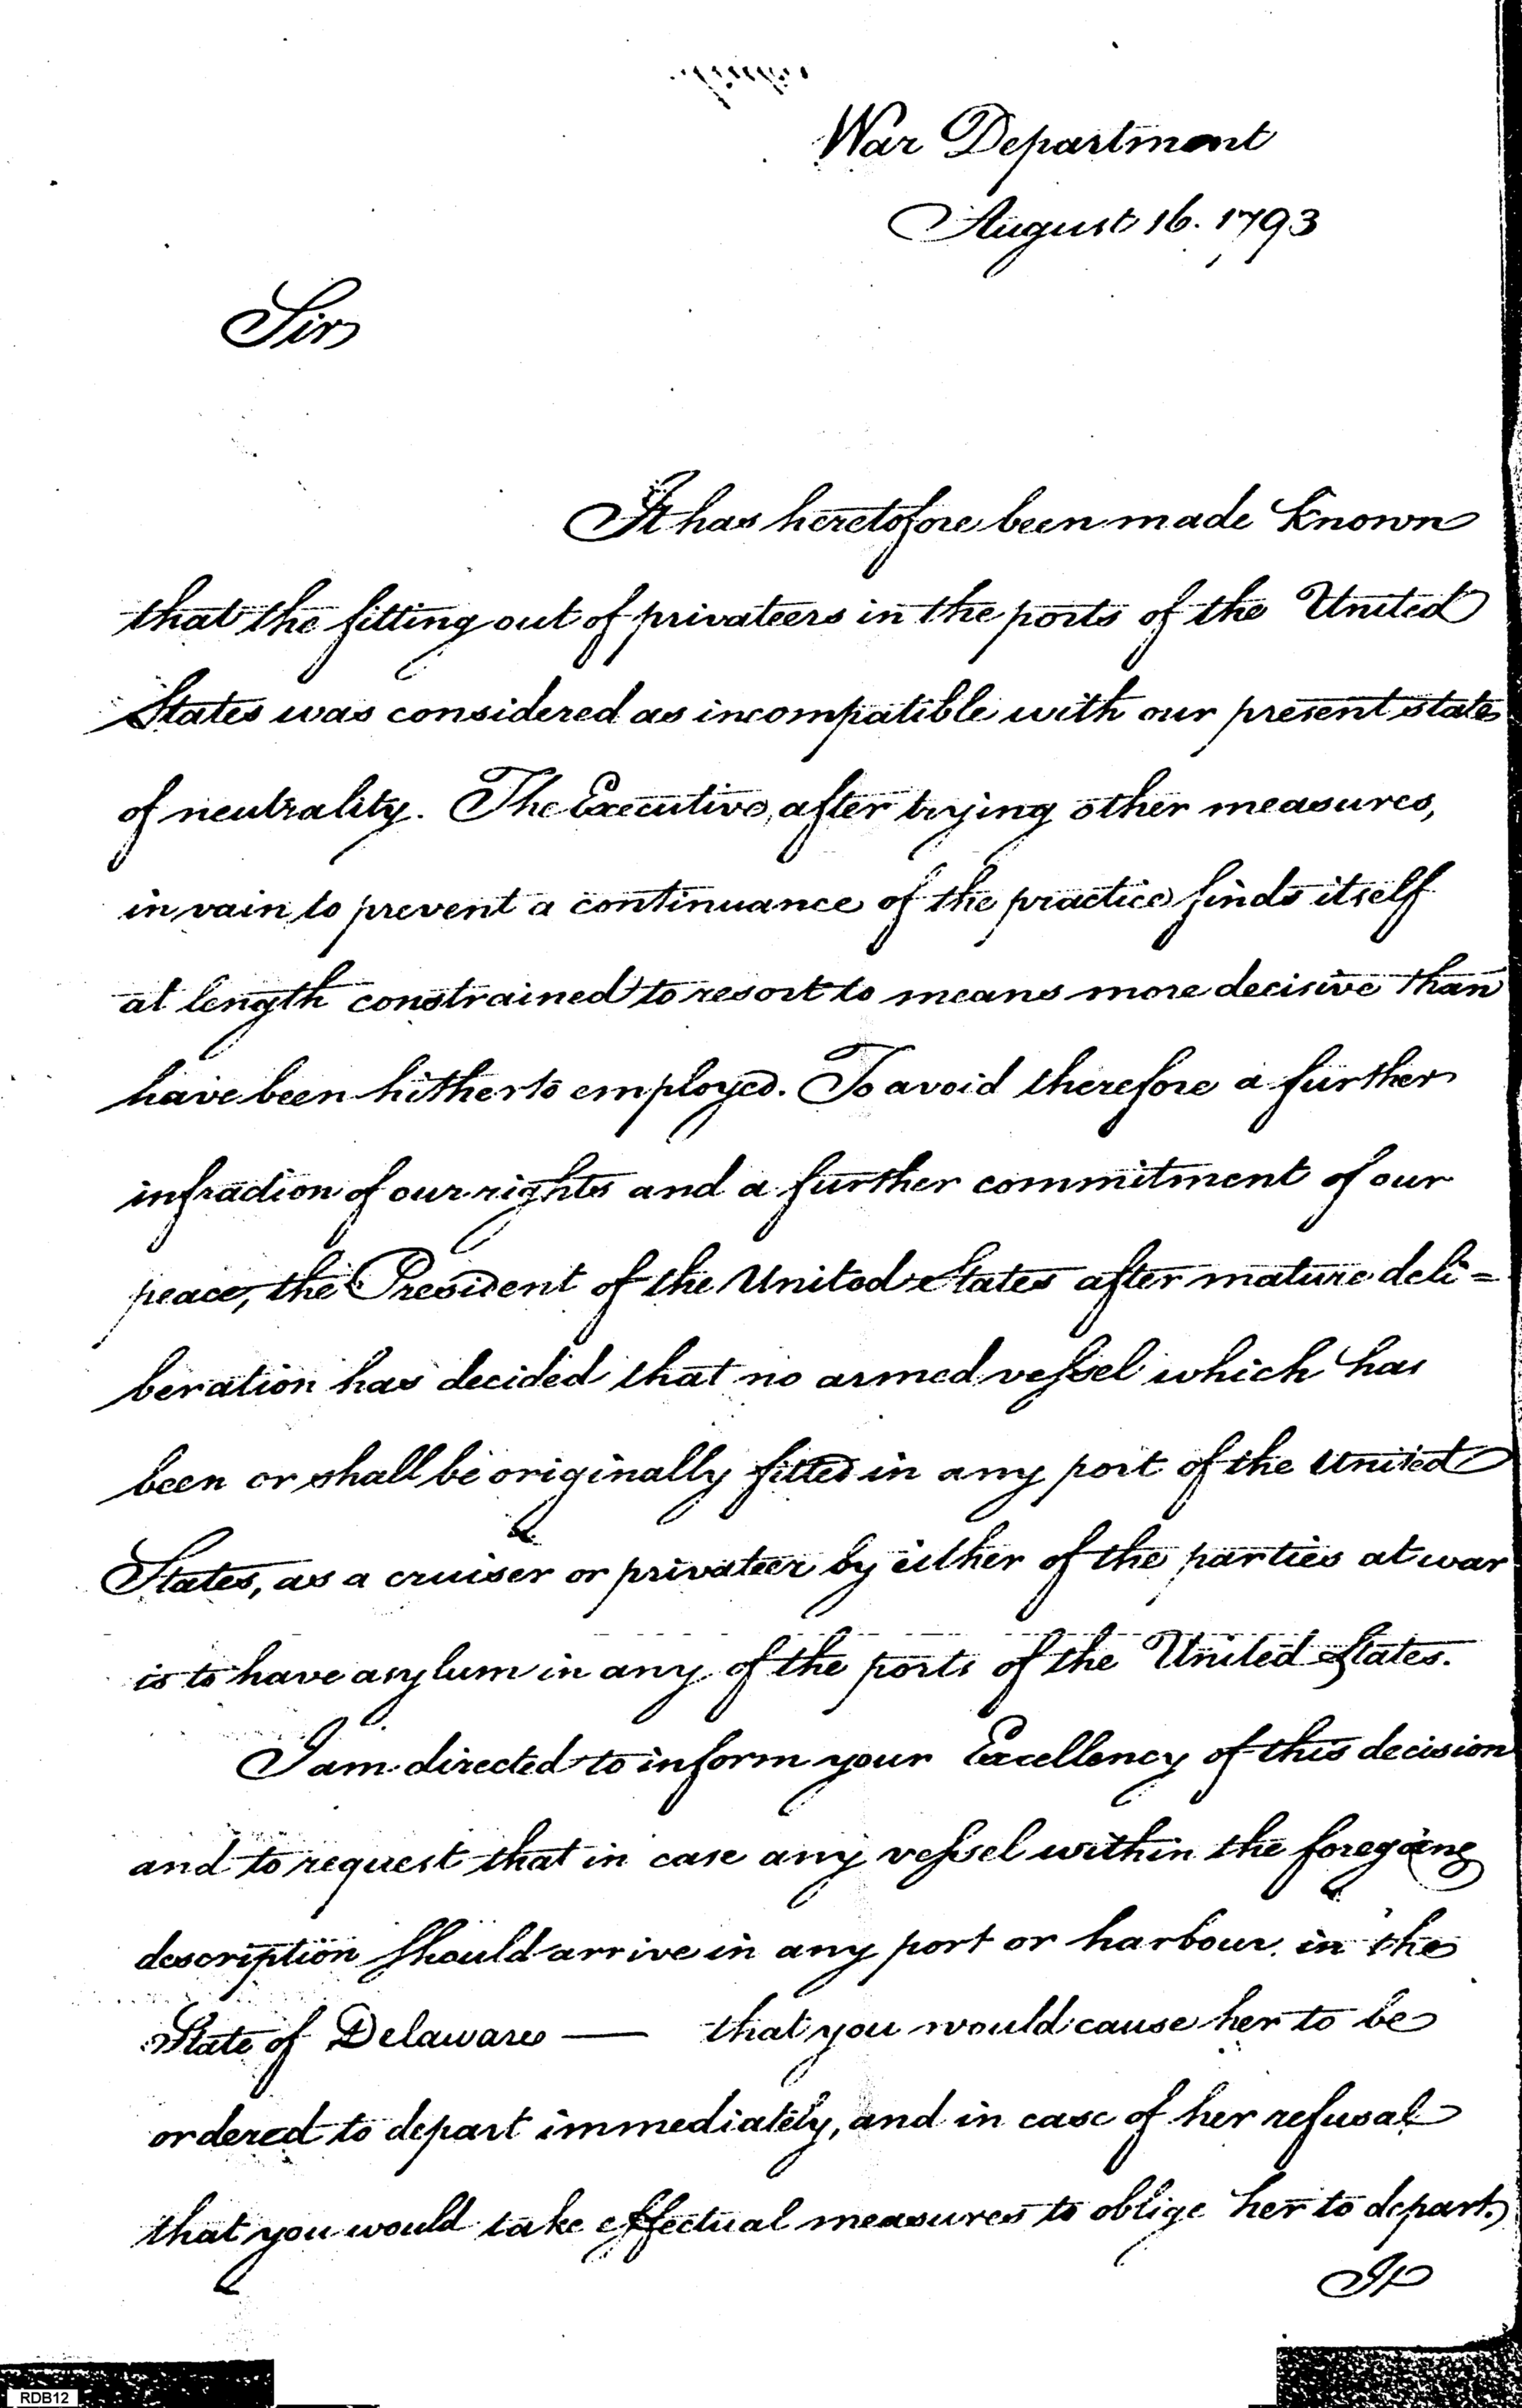 War Department
August 16. 1793
Sir
It has heretofore been made known
that the fitting out of privateers in the ports of the United
States was considered as incompatible with our present state
of neutrality. The Executive, after trying other measures,
in vain to prevent a continuance of the practice finds itself
at length constrained to resort to means more decisive than
have been hitherto employed. To avoid therefore a further
infraction of our rights and a further commitment of our
peace, the President of the United States after mature deli=
beration has decided that no armed vessel which has
been or shall be originally fitted in any port of the United
States, as a cruiser or privateer by either of the parties at war
is to have asylum in any of the ports of the United States.
I am directed to inform your Excellency of this decision
and to request that in case any vessel within the foregoing
description should arrive in any port or harbour in the
State of Delaware — that you would cause her to be
ordered to depart immediately, and in case of her refusal
that you would take effectual measures to oblige her to depart.
It
RDB12